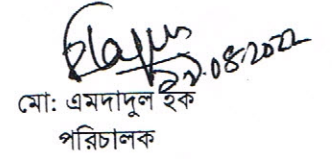 .08.2022
মো: এমদাদুল হক
পরিচালক